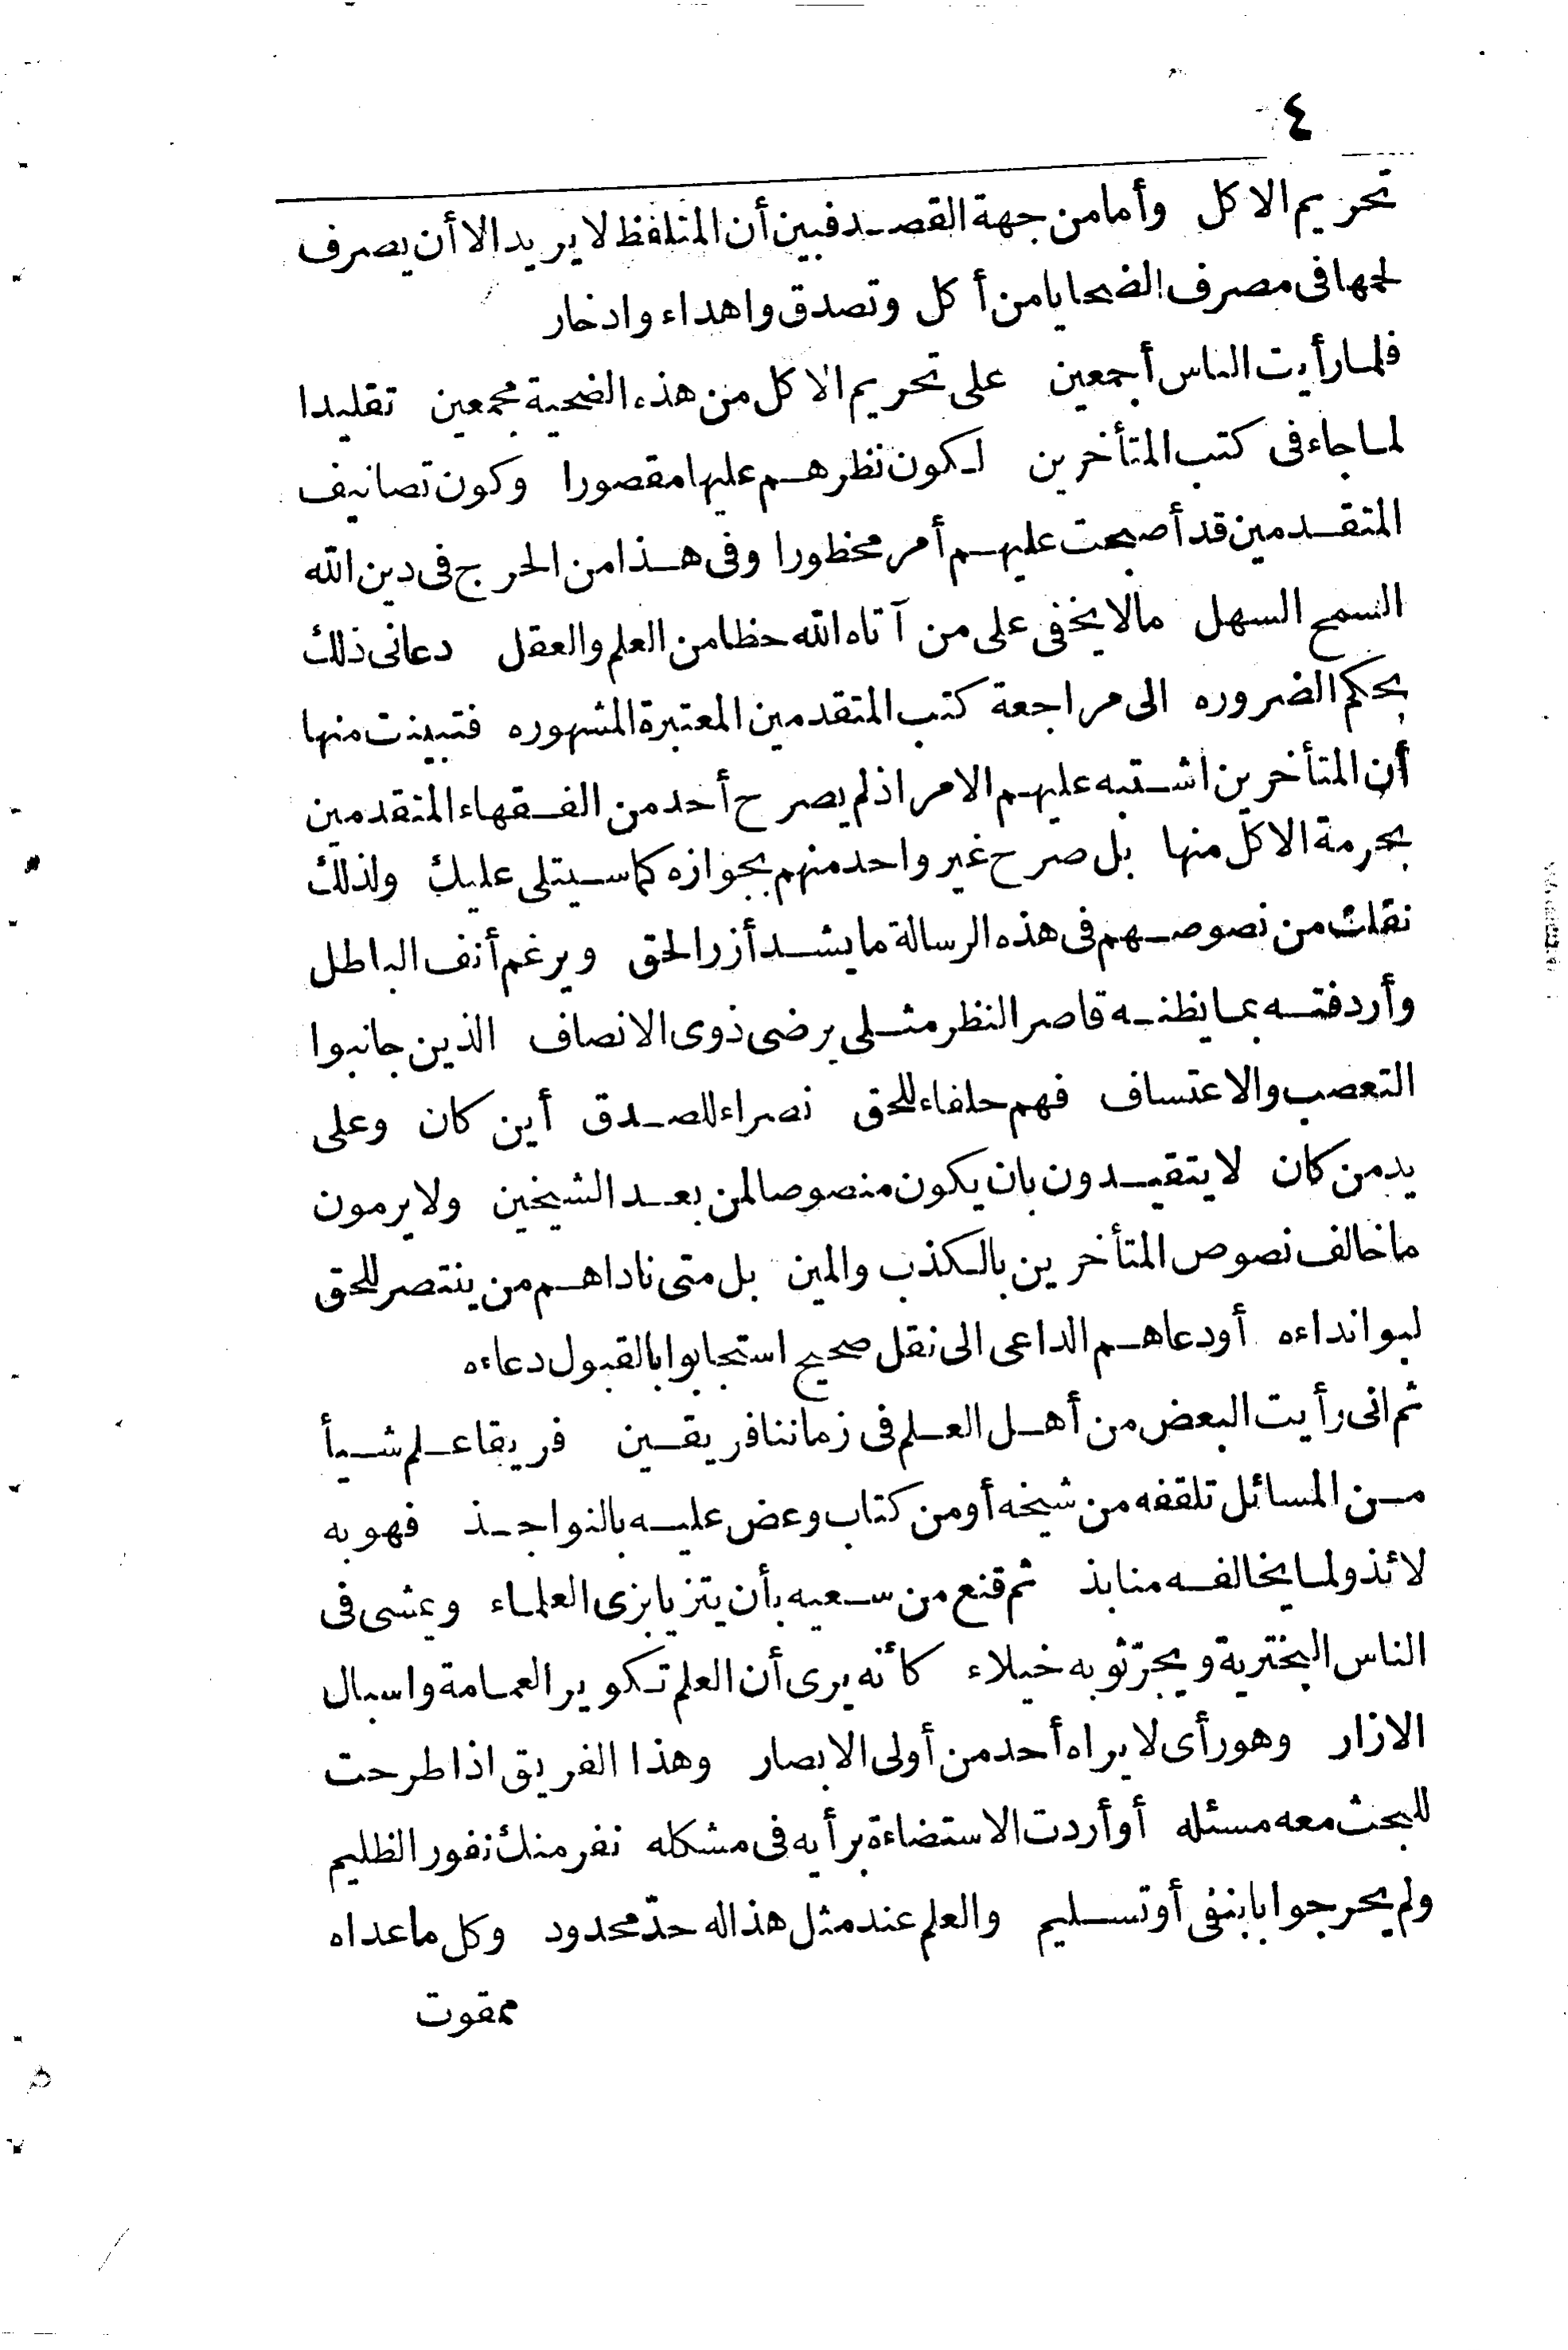 ٤
تحريم الاكل وأما من جهة القصد فبين أن المتلفظ لا يريد الا أن يصرف
لحمها فى مصرف الضحايا من أكل وتصدق واهداء وادخار
فلما رأيت الناس أجمعين على تحريم الاكل من هذه الضحية مجمعين تقليدا
لما جاء فى كتب المتأخرين لكون نظرهم عليها مقصورا وكون تصانيف
المتقدمين قد أصبحت عليهم أمر محظورا وفى هذا من الحرج فى دين الله
السمح السهل مالا يخفى على من آتاه الله حظا من العلم والعقل دعانى ذلك
بحكم الضروره الى مراجعة كتب المتقدمين المعتبرة المشهوره فتبينت منها
أن المتأخرين اشتبه عليهم الامر اذ لم يصرح أحد من الفقهاء المتقدمين
بحرمة الاكل منها بل صرح غير واحد منهم بجوازه كما سيتلى عليك ولذلك
نقلت من نصوصهم فى هذه الرسالة ما يشد أزر الحق ويرغم أنف الباطل
وأردفته بما يظنه قاصر النظر مثلى يرضى ذوى الانصاف الذين جانبوا
التعصب والاعتساف فهم حلفاء للحق نصراء للصدق أين كان وعلى
يد من كان لا يتقيدون بان يكون منصوصا لمن بعد الشيخين ولا يرمون
ما خالف نصوص المتأخرين بالكذب والمين بل متى ناداهم من ينتصر للحق
لبوا نداءه أو دعاهم الداعى الى نقل صحيح استجابوا بالقبول دعاءه
ثم انى رأيت البعض من أهل العلم فى زماننا فريقين فريقا علم شيأ
من المسائل تلقفه من شيخه أو من كتاب وعض عليه بالنواجذ فهو به
لائذ ولما يخالفه منابذ ثم قنع من سعيه بأن يتزيا بزى العلماء ويمشى فى
الناس البخترية ويجرّ ثوبه خيلاء كأنه يرى أن العلم تكوير العمامة واسبال
الازار وهو رأى لا يراه أحد من أولى الابصار وهذا الفريق اذا طرحت
للبحث معه مسئله أو أردت الاستضاءة برأيه فى مشكله نفر منك نفور الظليم
ولم يحر جوابا بنفى أو تسليم والعلم عند مثل هذا له حدّ محدود وكل ما عداه
ممقوت